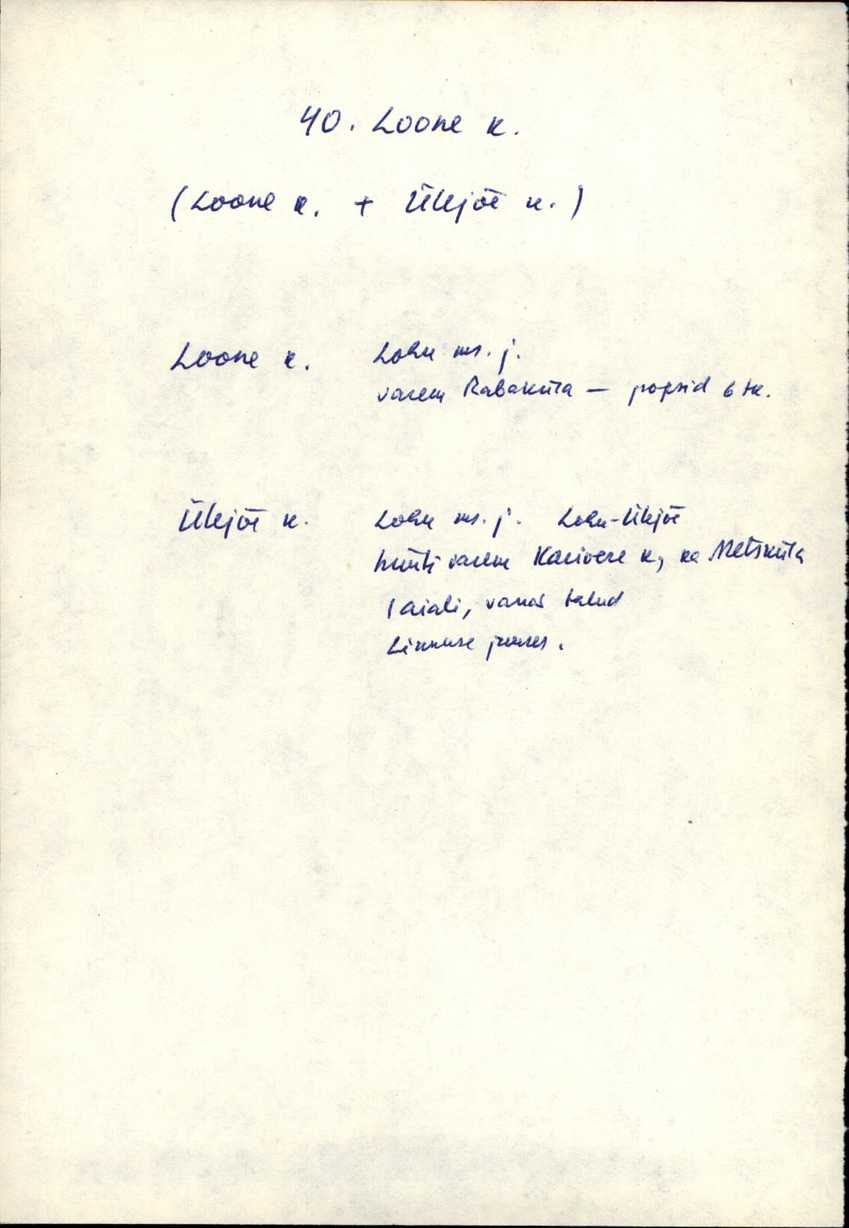 40. Loone k.
(Loone k. + Ülejõe k.)
Loone k. Lohu ms. j.
varem Rabaküla — popsid 6 tk.
Ülejõe k. Lohu ms. j. Lohu-Ülejõe
hüüti varem Karivere k, ka Metsküla
laiali, vanad talud
Linnuse juures.